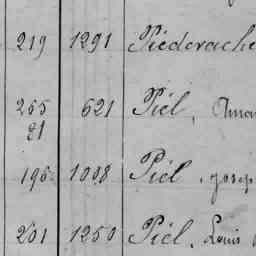 219 1291 Piéderache
265 621 Piel, Aman
21
196 1008 Piel, Josep
201 1250 Piel, Louis